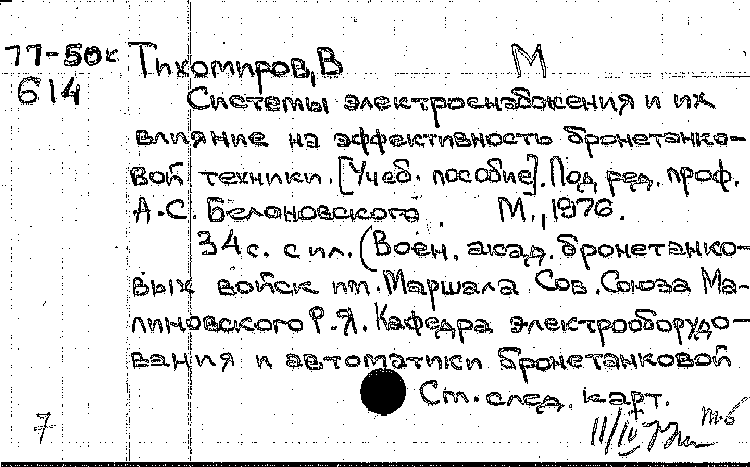 77-50к Тихомиров, В М
614 Системы электроснабжения и их
влияние на эффективность бронетанко-
вой техники. [Учеб. пособие]. Под ред. проф.
А.С. Белоновского. М., 1976.
34 с. с ил. (Воен. акад. бронетанко-
вых войск им. Маршала Сов. Союза Ма-
линовского Р.Я. Кафедра электрооборудо-
вания и автоматики бронетанковой
См. след. карт.
7
т.б